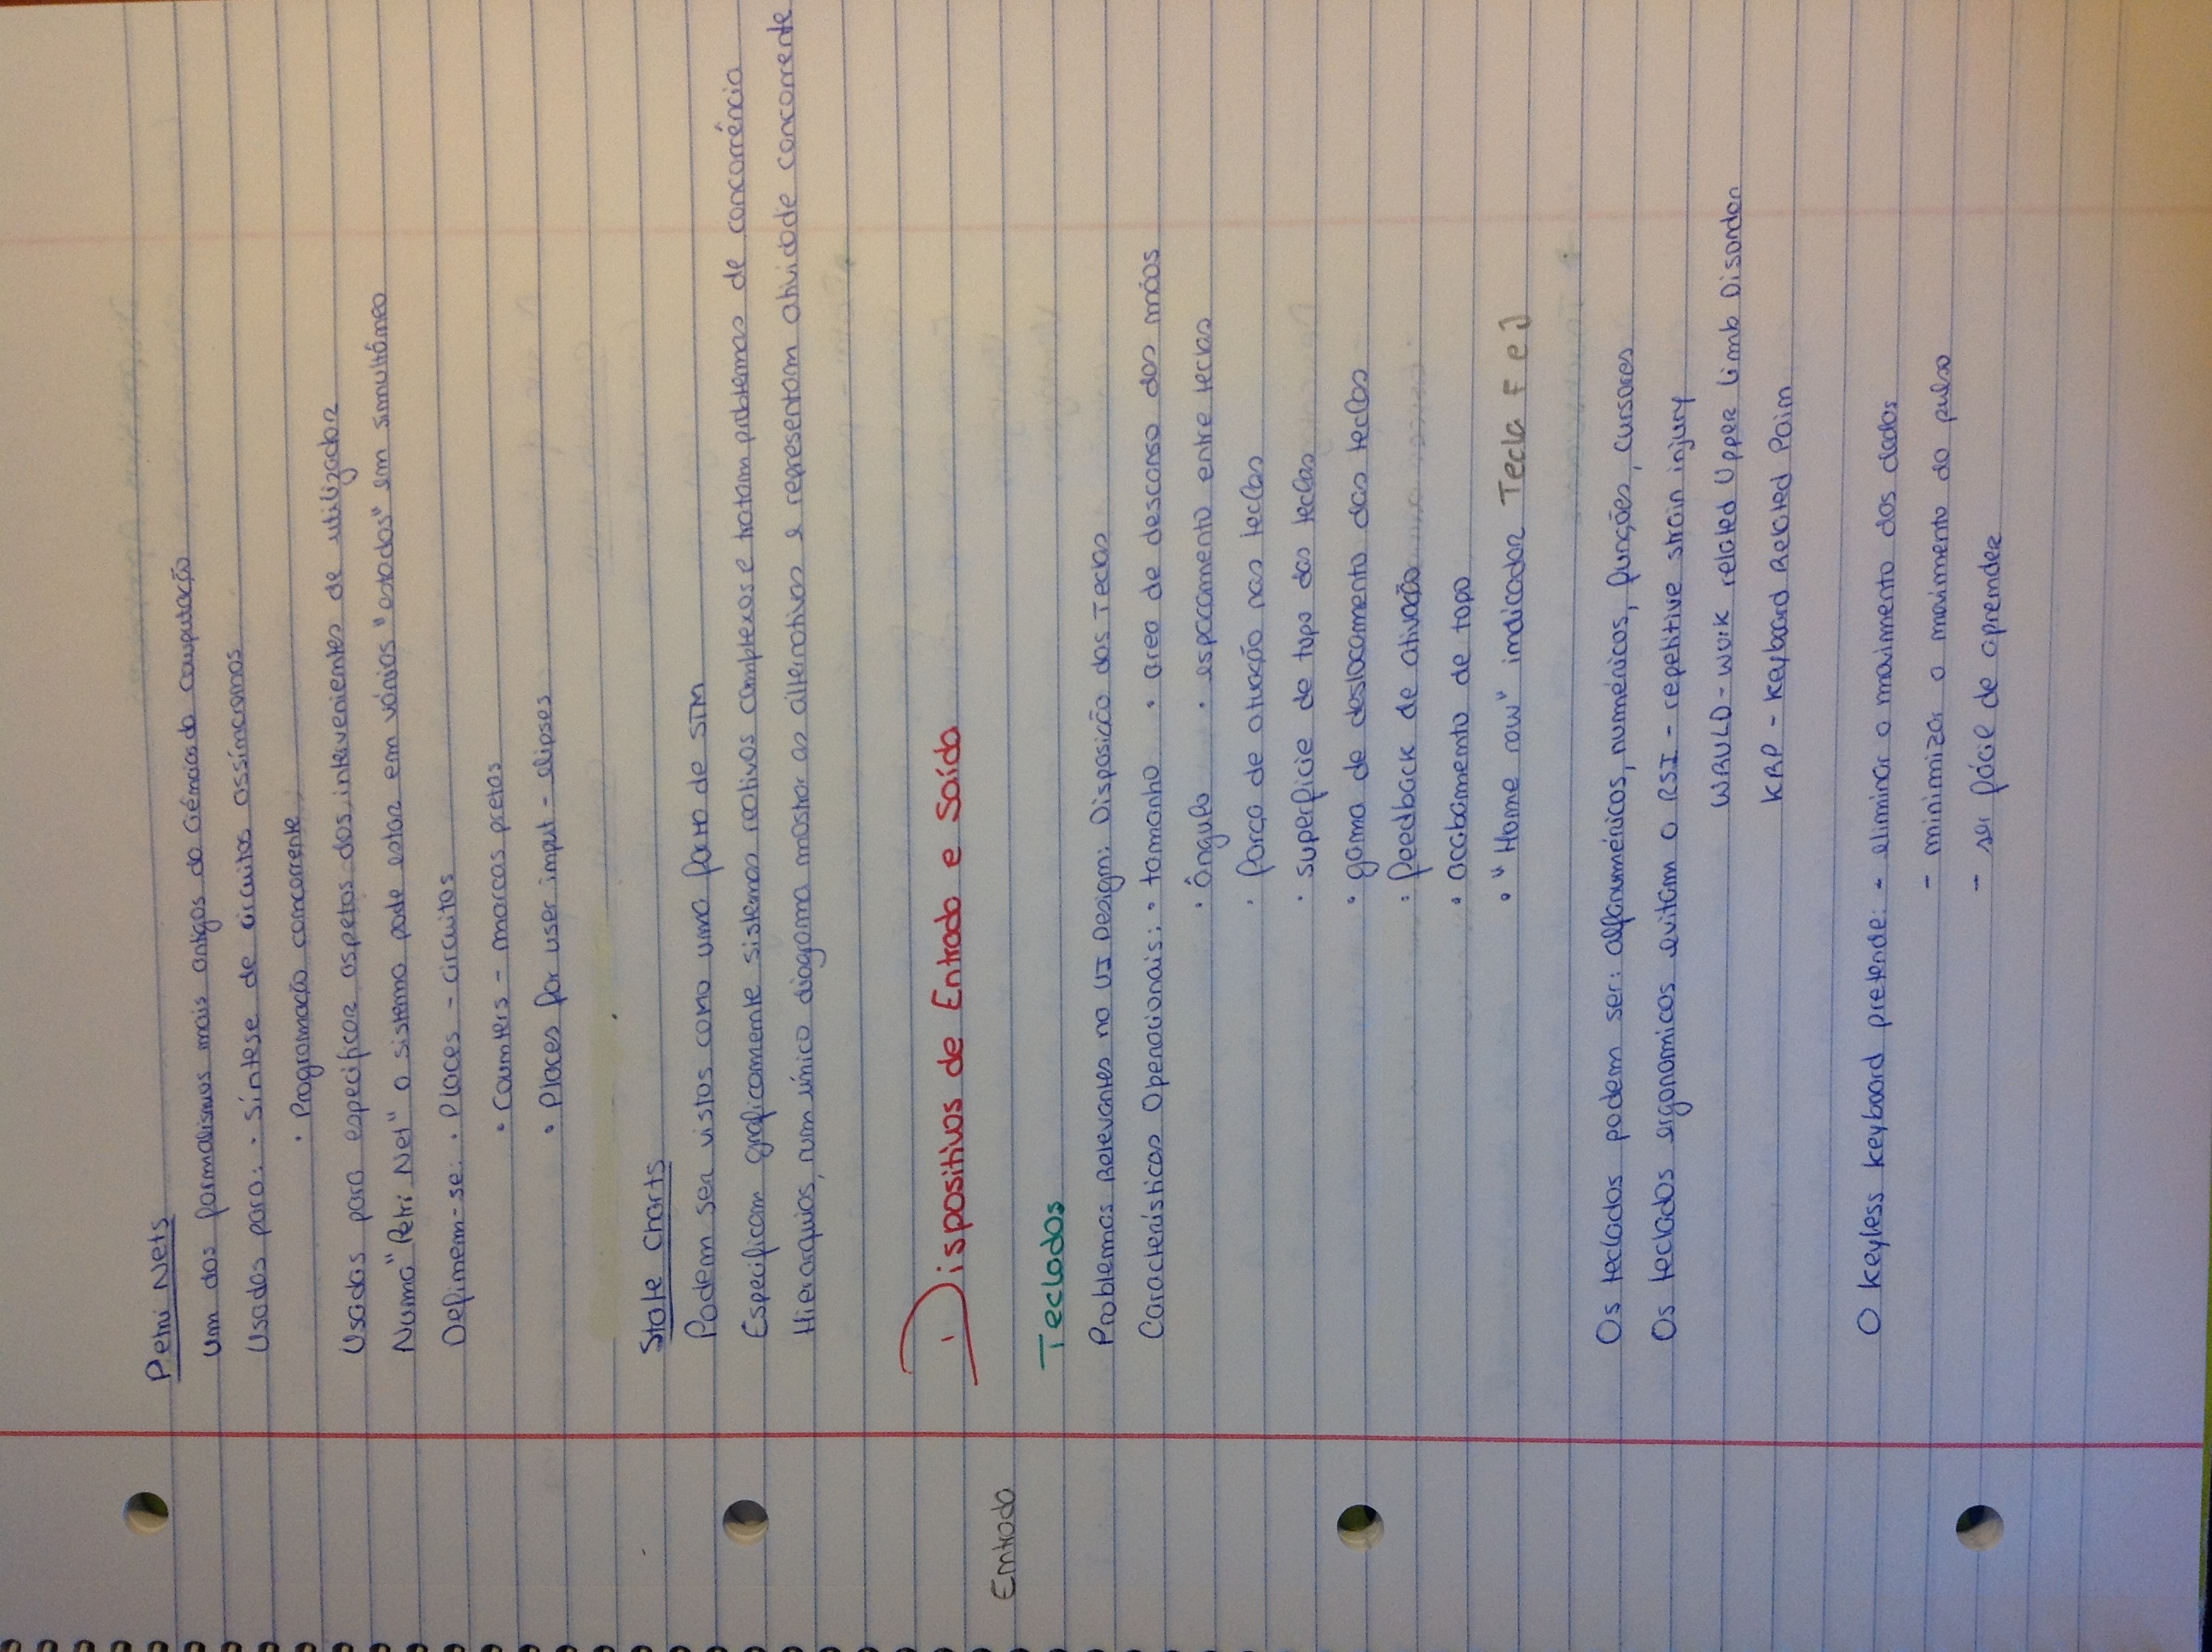 Petri Nets
Um dos formalismos mais antigos da Ciências da computação
Usados para: · Síntese de circuitos assíncronos
· Programação concorrente
Usadas para especificar aspetos dos intervenientes de utilizador
Numa "Petri Net" o sistema pode estar em vários "estados" em simultâneo
Definem-se: · Places - circuitos
· Counters - marcas pretas
· Places for user input - elipses
State Charts
Podem ser vistos como uma forma de STM
Especificam graficamente sistemas reativos complexos e tratam problemas de concorrência
Hierarquias, num único diagrama mostrar as alternativas e representam atividade concorrente
Dispositivos de Entrada e Saída
Entrada
Teclados
Problemas Relevantes no UI Design: Disposição das Teclas
Características Operacionais: · tamanho · area de descanso das mãos
· ângulo · espaçamento entre teclas
· força de atuação nas teclas
· superficie de topo das teclas
· gama de deslocamento das teclas
· feedback de ativação
· acabamento de topo
· "Home row" indicador Tecla F e J
Os teclados podem ser: alfanuméricos, numéricos, funções, cursores
Os teclados ergonomicos evitam o RSI - repetitive strain injury
WRULD - work related Upper Limb Disorder
KRP - Keyboard Related Pain
O Keyless keyboard pretende: - eliminar o movimento dos dedos
- minimizar o movimento do pulso
- ser fácil de aprender